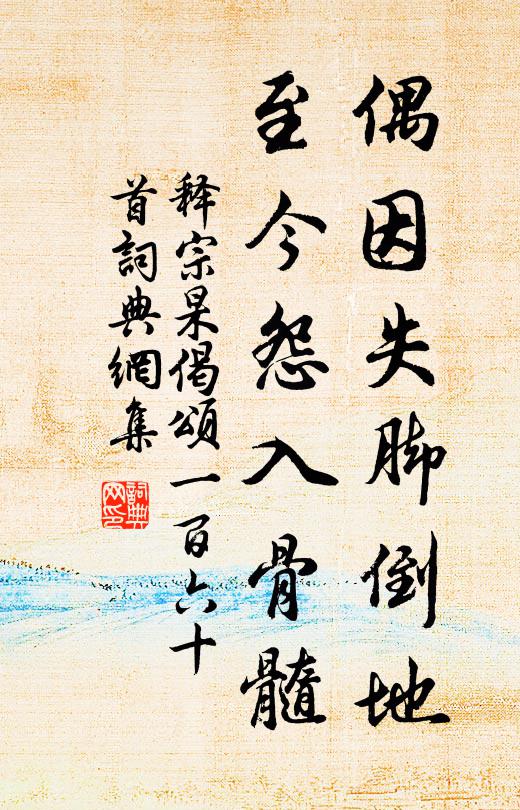 偶因失脚倒地
至今怨入骨髓
释宗杲偈頌一百六十
首詞典網集
詞典
网印